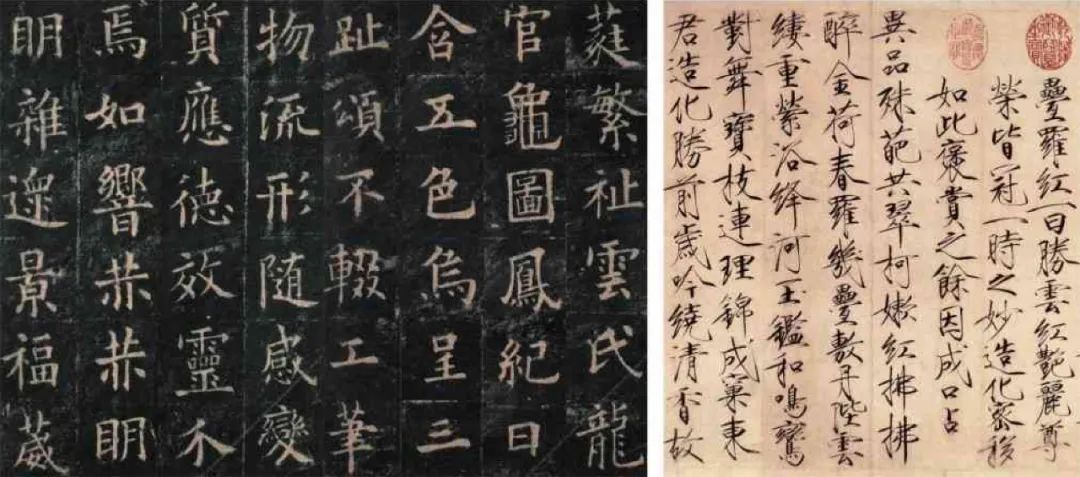 蕤繁祉雲氏龍
官龜圖鳳紀日
含五色烏呈三
趾頌不輟工筆
物流形隨感變
質應德效靈不
焉如響赫赫明
明雜遝景福葳
疊羅紅一曰勝雲紅艷麗尊
榮皆冠一時之妙造化密移
如此褒賞之餘因成口占
異品殊葩共翠柯嫩紅拂拂
醉金荷春羅幾疊敷丹陛雲
縷重縈浴絳河玉鑑和鳴鸞
對舞寶枝連理錦成窠東
君造化勝前歲吟繞清香故